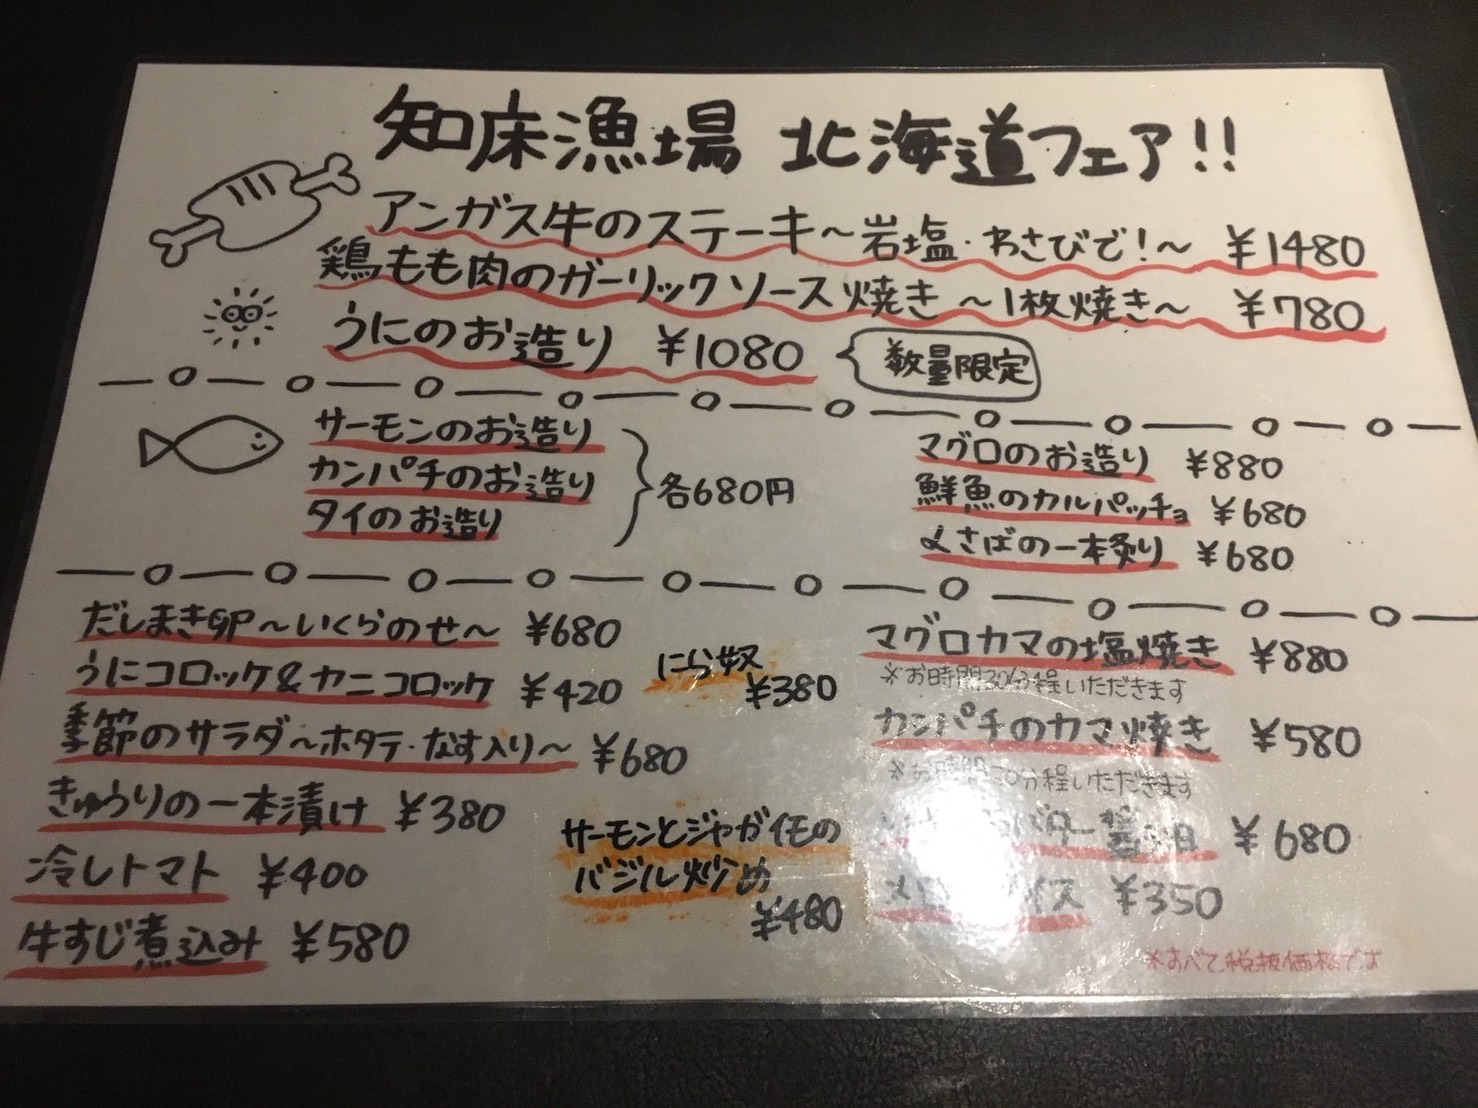 知床漁場 北海道フェア!!
アンガス牛のステーキ～岩塩・わさびで!～ ¥1480
鶏もも肉のガーリックソース焼き ～1枚焼き～ ¥780
うにのお造り ¥1080 数量限定
サーモンのお造り
カンパチのお造り
タイのお造り
各680円
マグロのお造り ¥880
鮮魚のカルパッチョ ¥680
〆さばの一本炙り ¥680
だしまき卵～いくらのせ～ ¥680
うにコロッケ&カニコロッケ ¥420
季節のサラダ～ホタテ・なす入り～ ¥680
きゅうりの一本漬け ¥380
冷しトマト ¥400
牛すじ煮込み ¥580
にら奴
¥380
サーモンとジャガイモの
バジル炒め
¥480
マグロカマの塩焼き ¥880
※お時間30分程いただきます
カンパチのカマ焼き ¥580
※お時間30分程いただきます
バター醤油 ¥680
アイス ¥350
※すべて税抜価格です